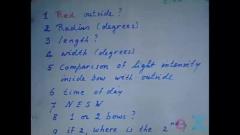 1 Red outside ?
2 Radius (degrees)
3 length ?
4 width (degrees)
5 Comparison of light intensity
inside bow with outside
6 time of day
7 N E S W
8 1 or 2 bows ?
9 if 2, where is the 2nd